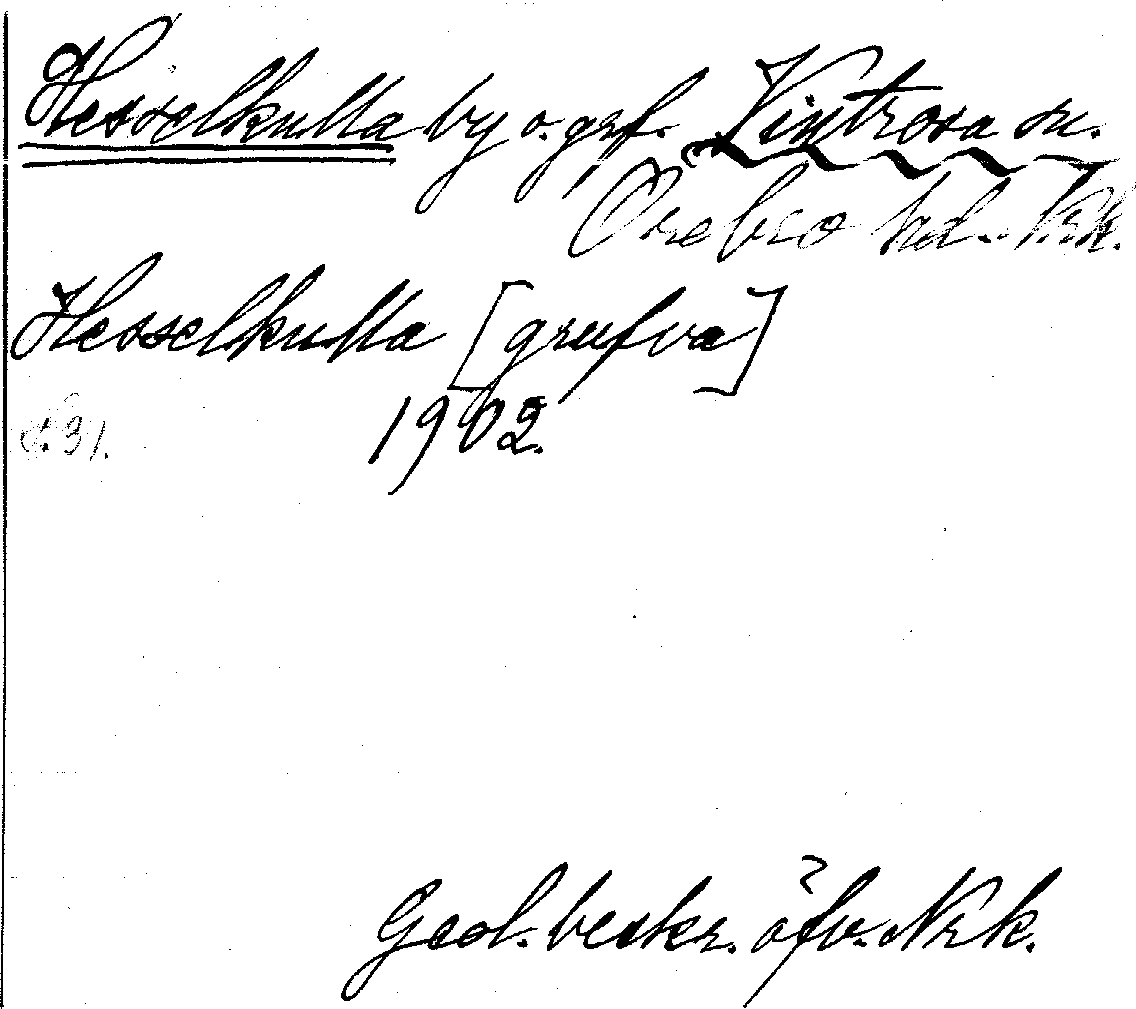 Hesselkulla by o. grf. Vintrosa sn.
Örebro hd. Nrk.
Hesselkulla [grufva]
s. 31. 1902.
Geol. beskr. öfv. Nrk.